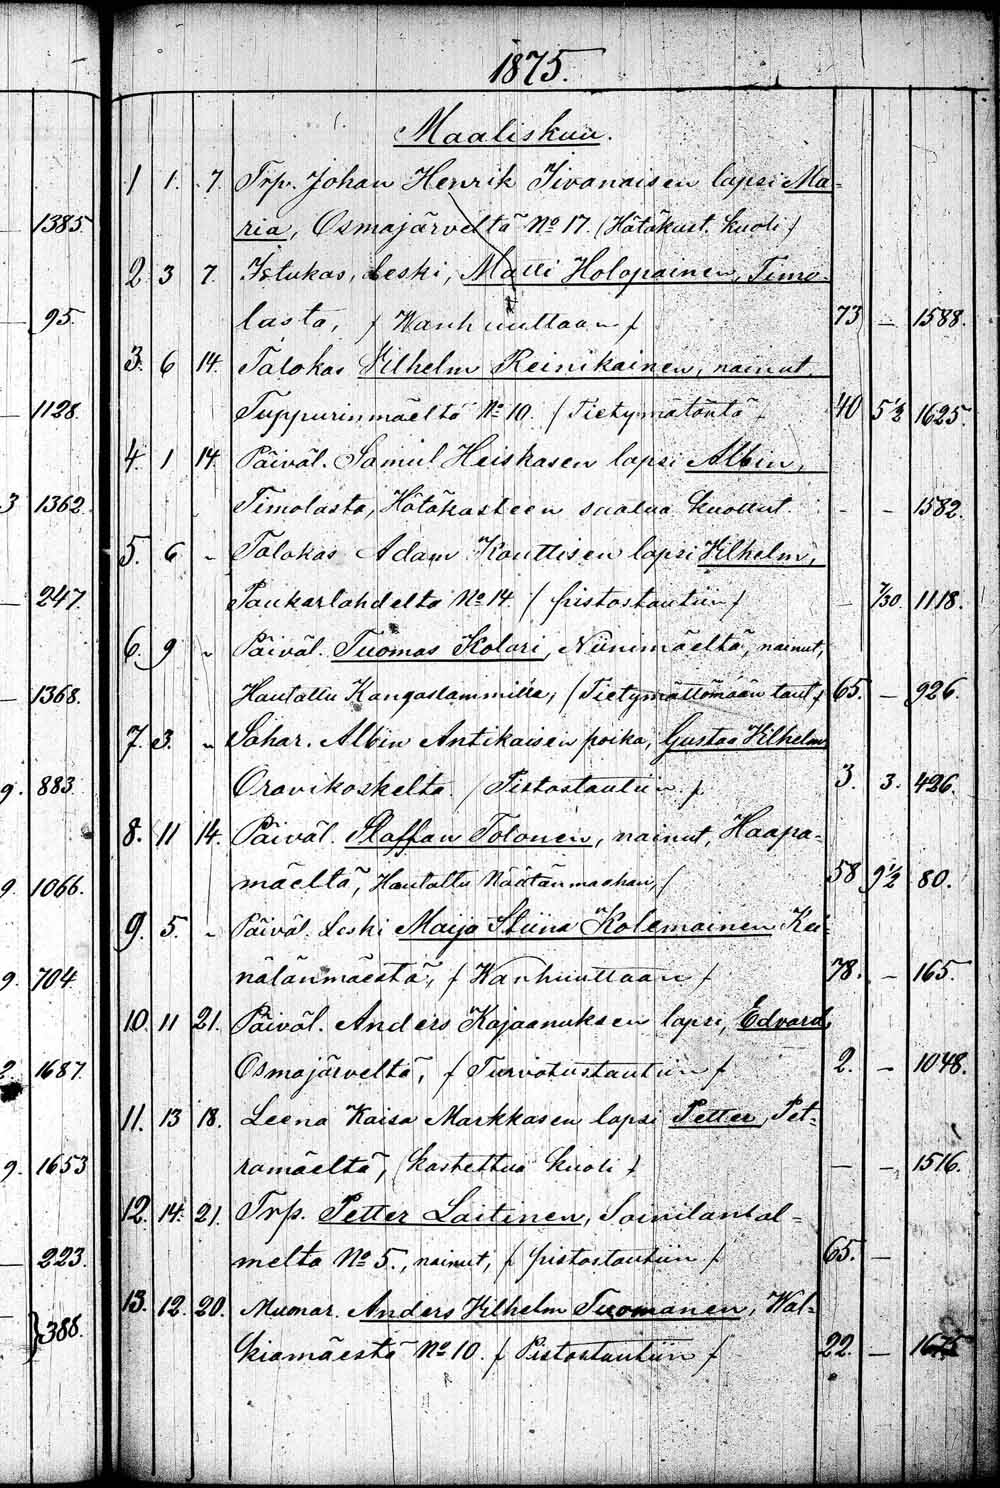 1875.
Maaliskuu.
1 1. 7. Trp. Johan Henrik Iivanaisen lapsi Ma-
1385. ria, Osmajärveltä No 17. (Hätäkast. kuoli)
2 3 7. Istukas, Leski, Matti Holopainen, Timo-
95. lasta, (Wanhuuttaan) 73 — 1588.
3. 6 14. Talokas Vilhelm Reinikainen, nainut,
1128. Tuppurinmäeltä No 10. (Tietymätöntä 40 5 1/2 1625.
4. 1 14. Päiväl. Samuel Heiskasen lapsi Albin,
3 1362. Timolasta, Hätäkasteen saatua kuollut. - - 1582.
5. 6 „ Talokas Adam Kouttisen lapsi Vilhelm,
247. Paukarlahdelta No 14. (pistostautiin) — 7/30. 1118.
6. 9 „ Päiväl. Tuomas Kolari, Niinimäeltä, nainut,
1368. Haudattu Kangaslammilla, (Tietymättömään taut.) 65. — 926.
7. 3. „ Sahar. Albin Antikaisen poika, Gustaa Vilhelm
9. 883. Oravikoskelta. (Pistostautiin) 3. 3. 426.
8. 11 14. Päiväl. Staffan Tolonen, nainut, Haapa-
9. 1066. mäeltä, Hautattu 58 9 1/2 80.
9. 5. „ Päiväl. Leski Maija Stiina Kolemainen Kei-
9. 704 nälänmäestä, (Wanhuuttaan) 78. — 165.
10. 11 21. Päiväl. Anders Kajaanuksen lapsi, Edvard,
2. 1687. Osmajärveltä, (Turvotustautiin) 2. — 1048.
11. 13 18. Leena Kaisa Markkasen lapsi Petter, Pet-
9. 1653 ramäeltä, (kastettua kuoli) — — 1516.
12. 14. 21. Trp. Petter Laitinen, Soinilansal-
223. melta No 5., nainut, (pistostautiin) 65. —
13. 12. 20. Muonar. Anders Vilhelm Tuomanen, Wal-
388. kiamäestä No 10. (Pistostautiin) 22. —